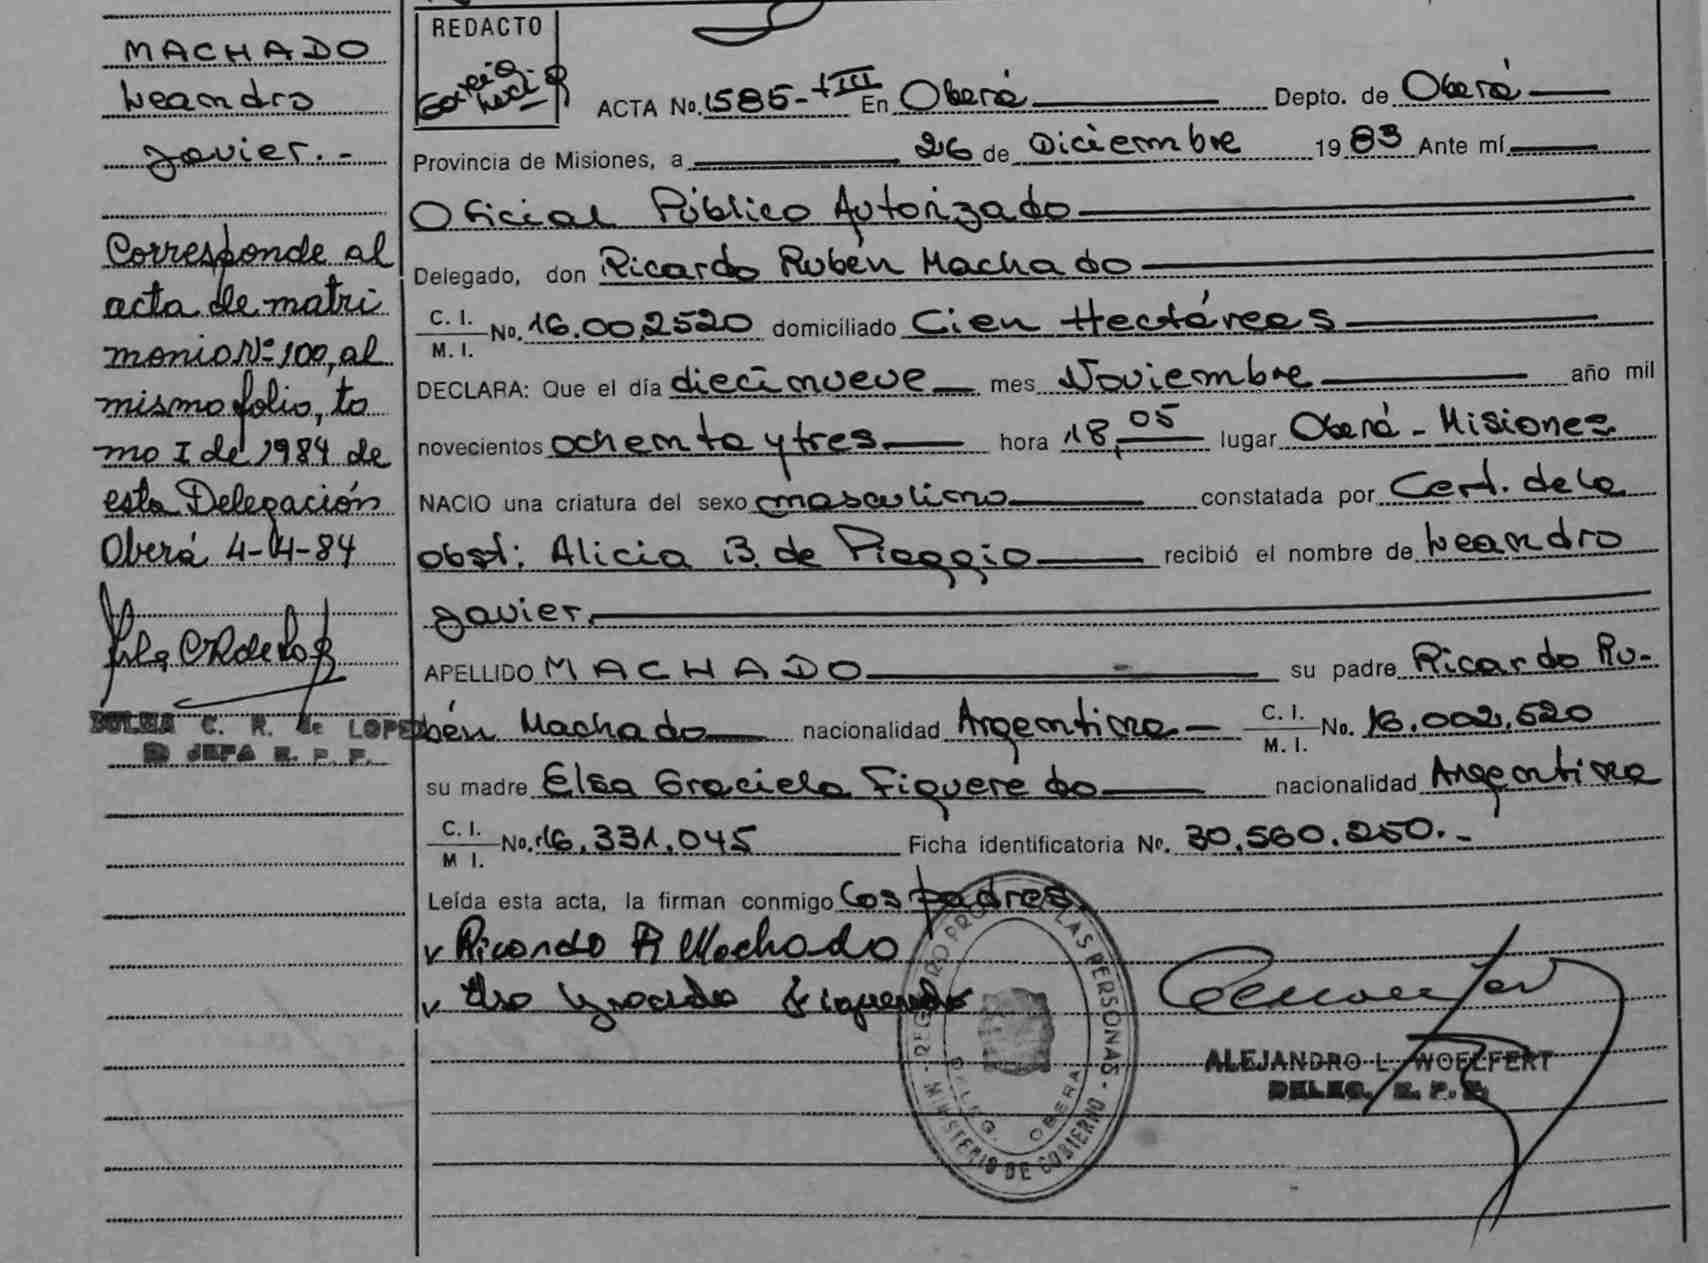 MACHADO
Leandro
Javier.-
Corresponde al
acta de matri
monio Nº 100, al
mismo folio, to
mo I de 1984 de
esta Delegación
Oberá 4-4-84
C. R. de LOPEZ
JEFA R. P. P.
REDACTO
ACTA No. 1585-tIII En Oberá Depto. de Oberá
Provincia de Misiones, a 26 de Diciembre 1983 Ante mí
Oficial Público Autorizado
Delegado, don Ricardo Rubén Machado
C. I.
M. I. No. 16.002520 domiciliado Cien Hectáreas
DECLARA: Que el día diecinueve mes Noviembre año mil
novecientos ochenta y tres hora 18,05 lugar Oberá - Misiones
NACIO una criatura del sexo masculino constatada por Cert. de la
obst: Alicia B. de Piaggio recibió el nombre de Leandro
Javier.
APELLIDO MACHADO su padre Ricardo Ru-
bén Machado nacionalidad Argentina - C. I.
M. I. No. 16.002.520
su madre Elsa Graciela Figueredo nacionalidad Argentina
C. I.
M I. No. 16.331.045 Ficha identificatoria No. 30.560.250.-
Leída esta acta, la firman conmigo Los padres.
Ricardo R Machado
Elsa Graciela Figueredo
REGISTRO PROV. DE LAS PERSONAS - MINISTERIO DE GOBIERNO -
DELEG. OBERA
ALEJANDRO L. WOELFERT
DELEG. R. P. P.